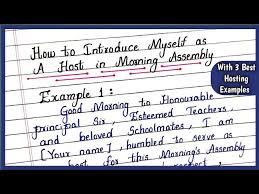 How to Introduce Myself as
A Host in Morning Assembly
With 3 Best
Hosting
Examples
Example 1 :
Good Morning to Honourable
principal Sir, Esteemed Teachers,
and beloved Schoolmates, I am
[Your name], humbled to serve as
host for this Morning's Assembly